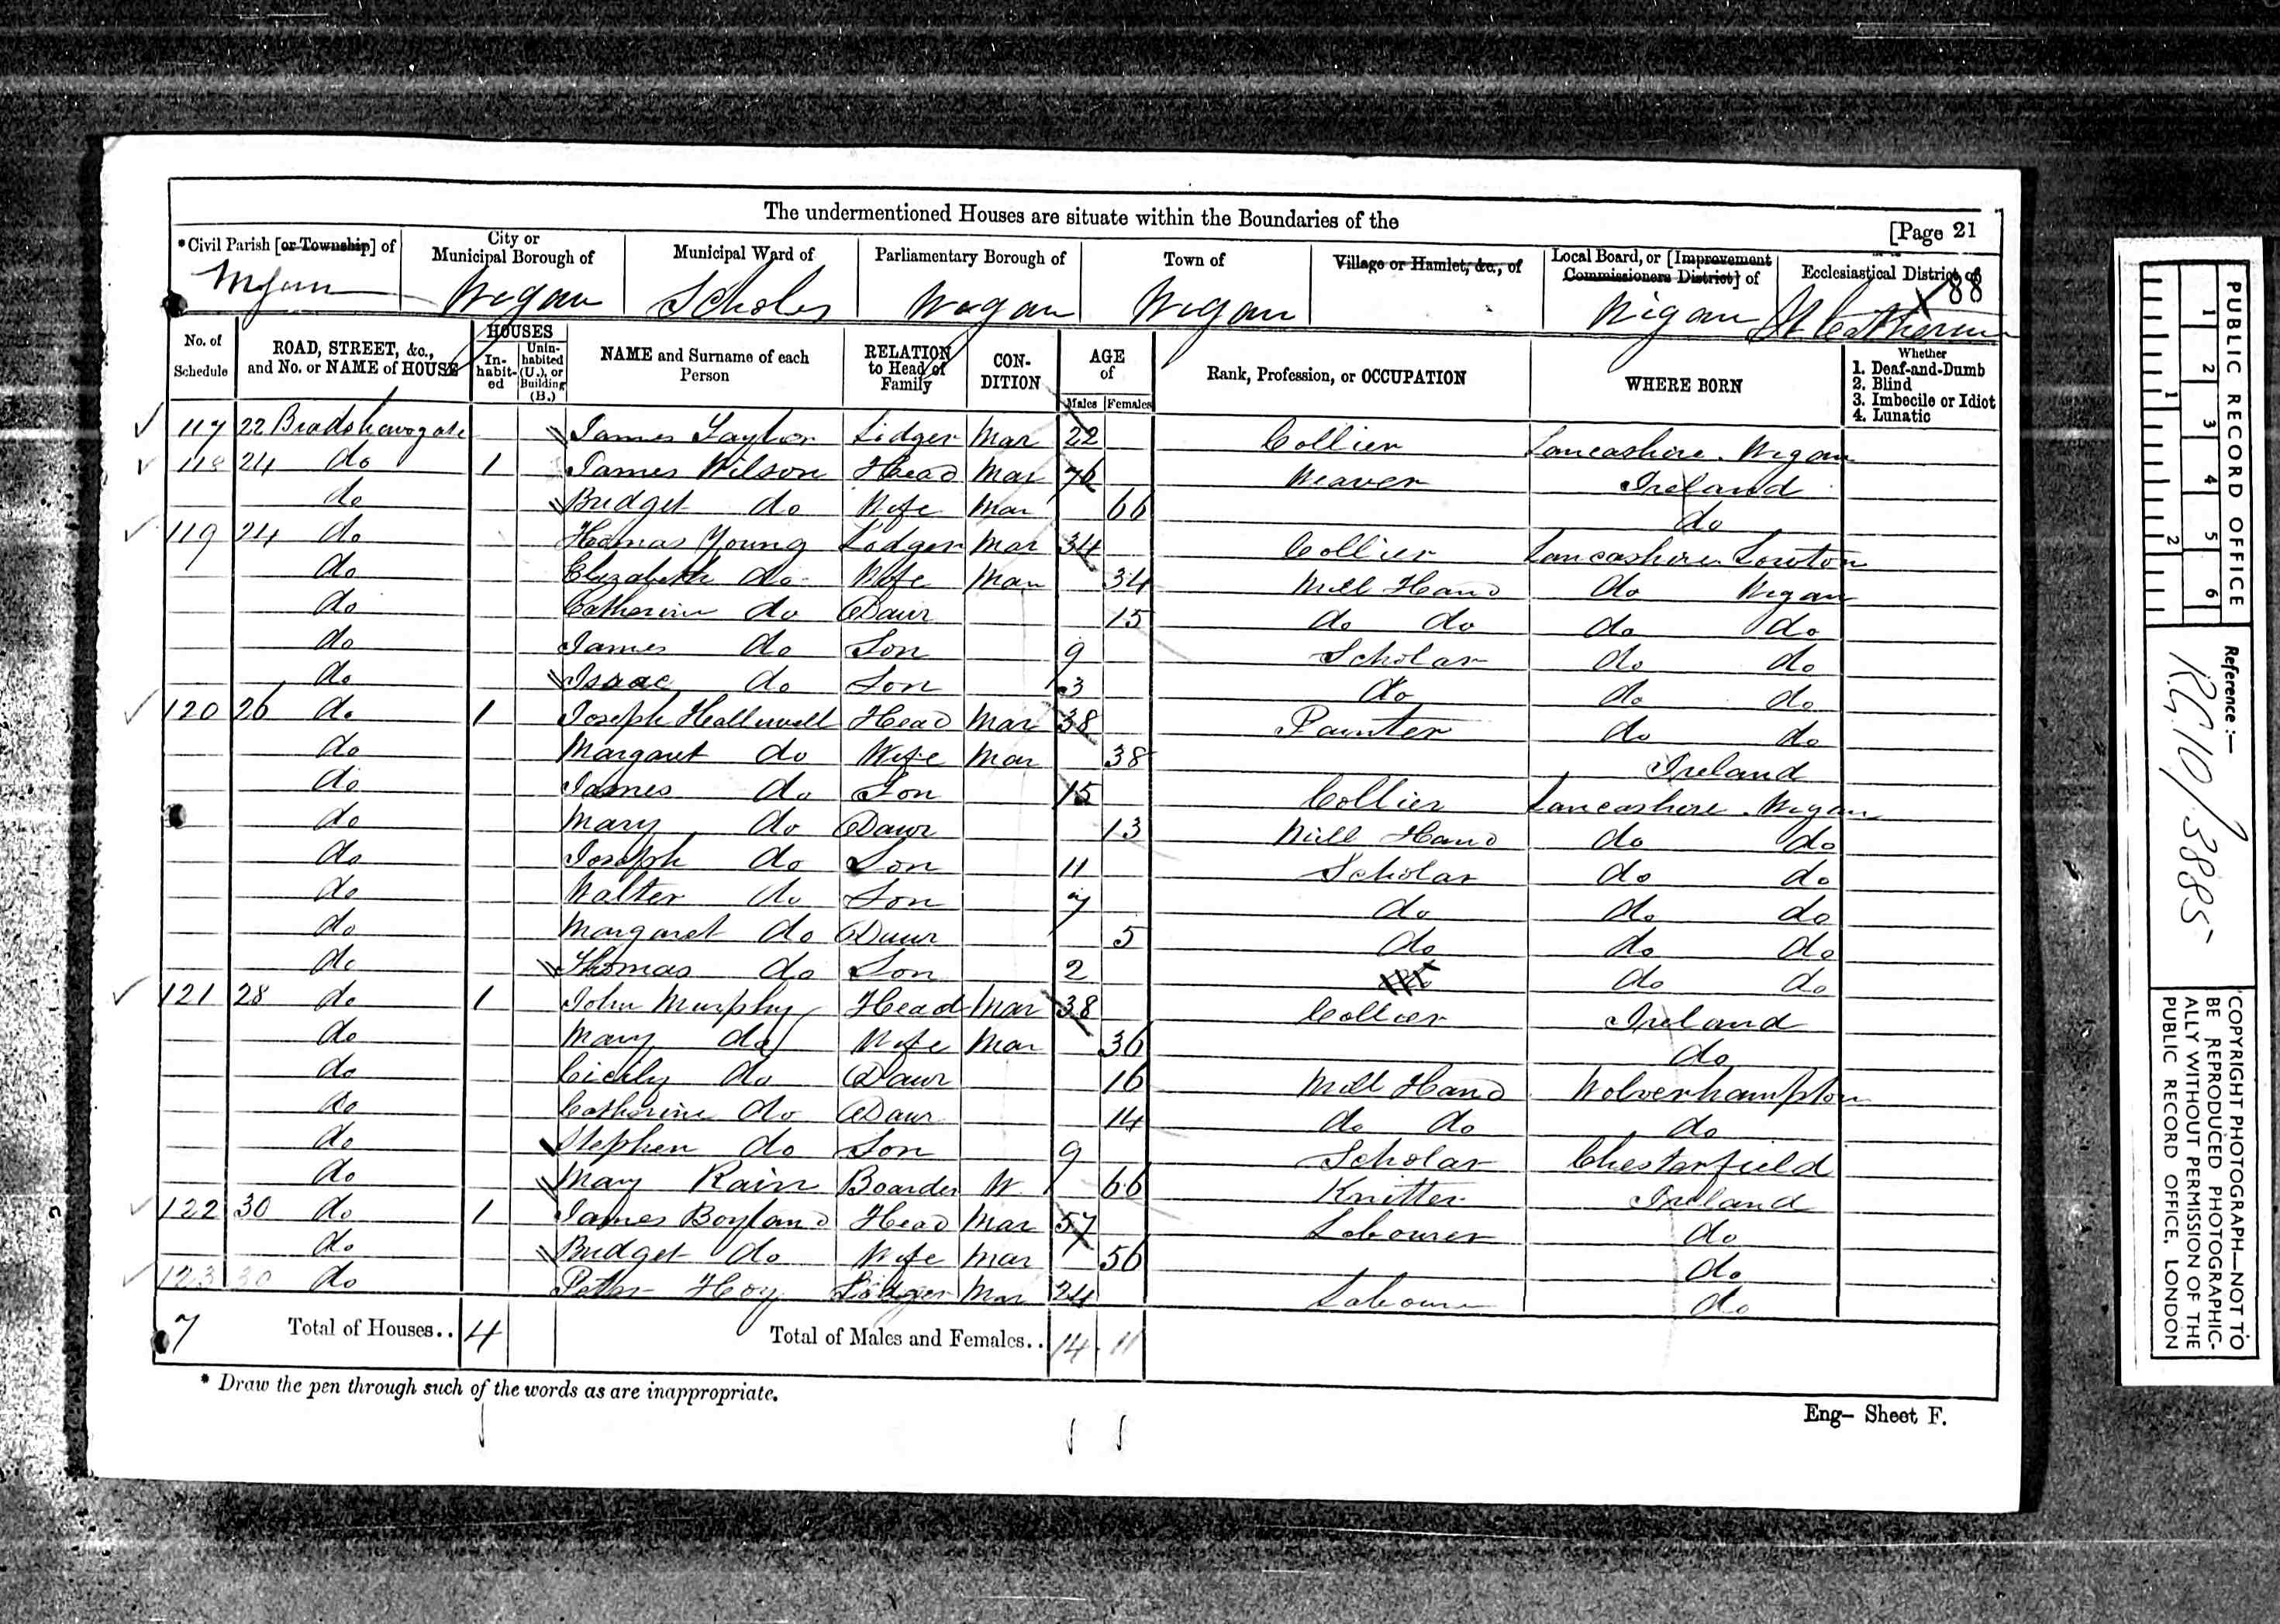 The undermentioned Houses are situate within the Boundaries of the
[Page 21
*Civil Parish [or Township] of
City or Municipal Borough of
Municipal Ward of
Parliamentary Borough of
Town of
Village or Hamlet, &c., of
Local Board, or [Improvement Commissioners District] of
Ecclesiastical District of
88
Wigan Wigan Scholes Wigan Wigan Wigan St Catherine
No. of Schedule
ROAD, STREET, &c., and No. or NAME of HOUSE
HOUSES
In-habit-ed
Unin-habited (U.), or Building (B.)
NAME and Surname of each Person
RELATION to Head of Family
CON-DITION
AGE of
Males Females
Rank, Profession, or OCCUPATION
WHERE BORN
Whether
1. Deaf-and-Dumb
2. Blind
3. Imbecile or Idiot
4. Lunatic
117 22 Bradshawgate James Taylor Lodger Mar 22 Collier Lancashire Wigan
118 24 do 1 James Wilson Head Mar 76 Weaver Ireland
do Bridget do Wife Mar 66 do
119 24 do Thomas Young Lodger Mar 34 Collier Lancashire Lowton
do Elizabeth do Wife Mar 34 Mill Hand do Wigan
do Catherine do Daur 15 do do do do
do James do Son 9 Scholar do do
do Isaac do Son 3 do do do
120 26 do 1 Joseph Halliwell Head Mar 38 Painter do do
do Margaret do Wife Mar 38 Ireland
do James do Son 15 Collier Lancashire Wigan
do Mary do Daur 13 Mill Hand do do
do Joseph do Son 11 Scholar do do
do Walter do Son 7 do do do
do Margaret do Daur 5 do do do
do Thomas do Son 2 do do
121 28 do 1 John Murphy Head Mar 38 Collier Ireland
do Mary do Wife Mar 36 do
do Cicily do Daur 16 Mill Hand Wolverhampton
do Catherine do Daur 14 do do do
do Stephen do Son 9 Scholar Chesterfield
do Mary Rain Boarder W 66 Knitter Ireland
122 30 do 1 James Boyland Head Mar 57 Labourer do
do Bridget do Wife Mar 56 do
123 30 do Peter Hoy Lodger Mar 24 Labourer do
7 Total of Houses.. 4 Total of Males and Females.. 14 11
* Draw the pen through such of the words as are inappropriate.
Eng- Sheet F.
PUBLIC RECORD OFFICE
1 2 3 4 5 6
1 2
Reference :-
RG 10/3885
COPYRIGHT PHOTOGRAPH—NOT TO
BE REPRODUCED PHOTOGRAPHIC-
ALLY WITHOUT PERMISSION OF THE
PUBLIC RECORD OFFICE, LONDON